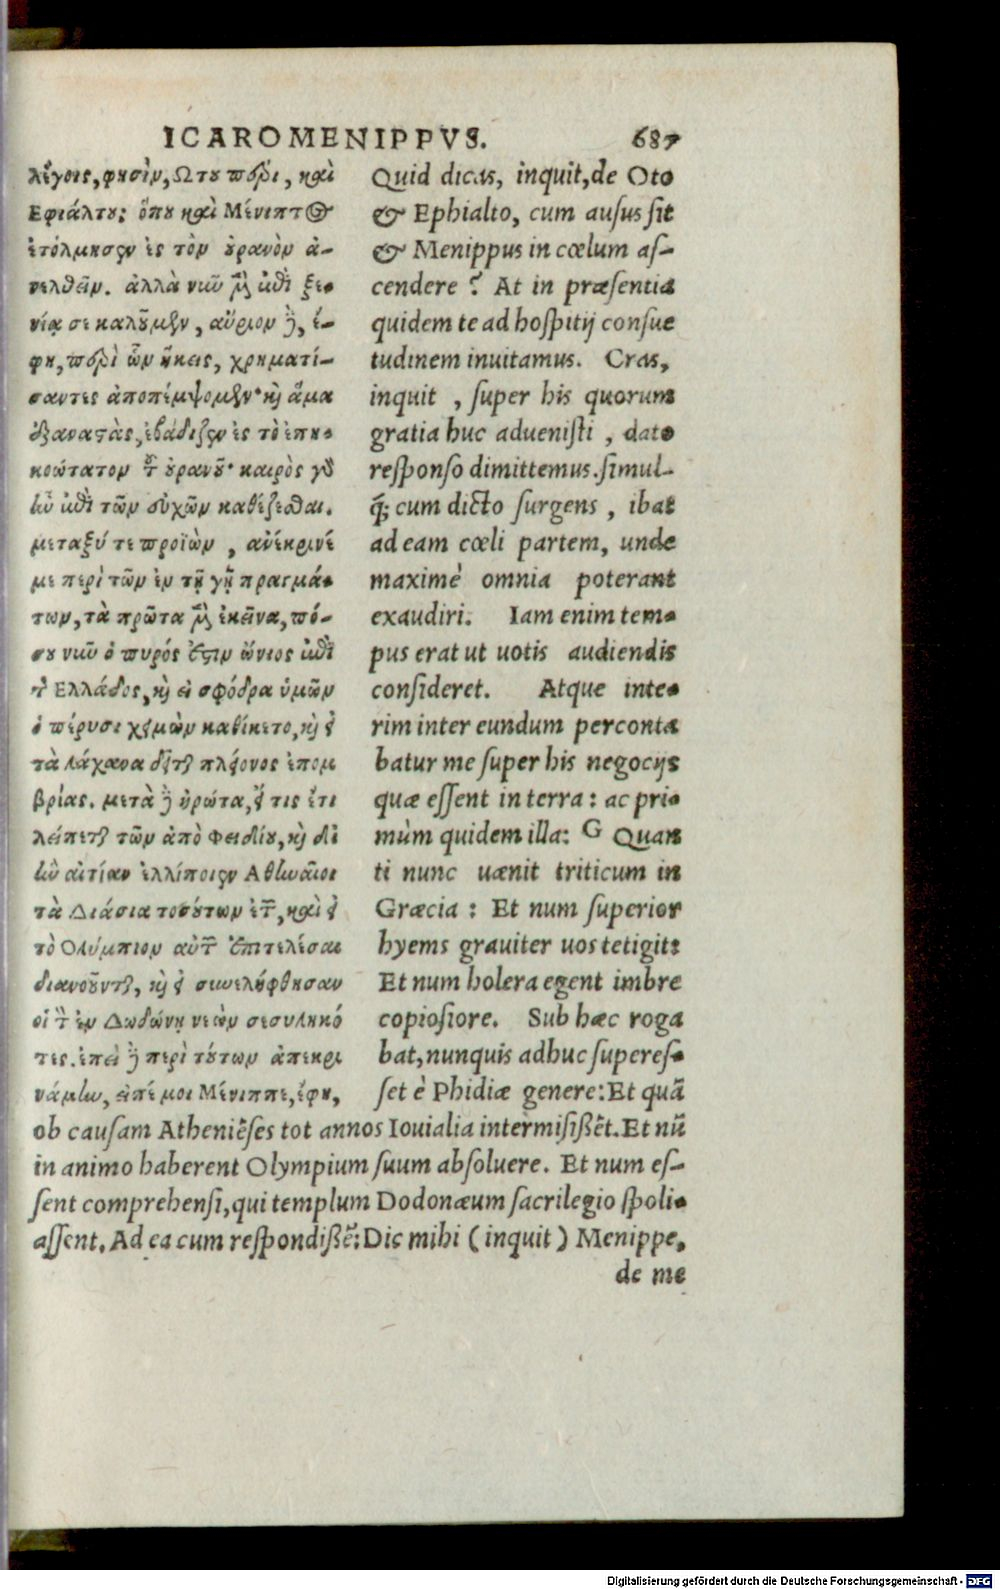 ICAROMENIPPVS. 687
λέγεις, φησὶν, Ωτου πέρι, καὶ
Εφιάλτου; ὅπου καὶ Μένιππος
ἐτόλμησεν ἐς τὸν οὐρανὸν ἀ-
νελθεῖν. ἀλλὰ νῦν μὲν ἐπὶ ξε-
νίᾳ σε καλοῦμεν, αὔριον δὲ, ἔ-
φη, περὶ ὧν ἥκεις, χρηματί-
σαντες ἀποπέμψομεν· καὶ ἅμα
ἐξαναστὰς, ἐβάδιζεν ἐς τὸ ἐπη-
κοώτατον τοῦ οὐρανοῦ· καιρὸς γὰρ
ἦν ἐπὶ τῶν εὐχῶν καθέζεσθαι.
μεταξύ τε προϊὼν, ἀνέκρινέ
με περὶ τῶν ἐν τῇ γῇ πραγμά-
των, τὰ πρῶτα μὲν ἐκεῖνα, πό-
σου νῦν ὁ πυρός ἐστιν ὤνιος ἐπὶ
τῆς Ελλάδος, καὶ εἰ σφόδρα ὑμῶν
ὁ πέρυσι χειμὼν καθίκετο, καὶ εἰ
τὰ λάχανα δεῖται πλείονος ἐπομ
βρίας. μετὰ δὲ ἠρώτα, εἴ τις ἔτι
λείπεται τῶν ἀπὸ Φειδίου, καὶ δι
ἣν αἰτίαν ἐλλίποιεν Αθηναῖοι
τὰ Διάσια τοσούτων ἐτῶν, καὶ εἰ
τὸ Ολύμπιον αὐτῶν ἐπιτελέσαι
διανοοῦνται, καὶ εἰ συνελήφθησαν
οἱ τὸν ἐν Δωδώνῃ νεὼν σεσυληκό
τες. ἐπεὶ δὲ περὶ τούτων ἀπεκρι
νάμην, εἰπέ μοι Μένιππε, ἔφη,
Quid dicas, inquit, de Oto
& Ephialto, cum ausus sit
& Menippus in cœlum as-
cendere? At in præsentia
quidem te ad hospitij consue
tudinem inuitamus. Cras,
inquit, super his quorum
gratia huc aduenisti, dato
responso dimittemus. simul-
q; cum dicto surgens, ibat
ad eam cœli partem, unde
maximè omnia poterant
exaudiri. Iam enim tem-
pus erat ut uotis audiendis
consideret. Atque inte-
rim inter eundum perconta
batur me super his negocijs
quæ essent in terra: ac pri-
mùm quidem illa: G Quan
ti nunc uænit triticum in
Græcia: Et num superior
hyems grauiter uos tetigit:
Et num holera egent imbre
copiosiore. Sub hæc roga
bat, nunquis adhuc superes-
set è Phidiæ genere: Et quã
ob causam Atheniẽses tot annos Iouialia intermisißẽt. Et nũ
in animo haberent Olympium suum absoluere. Et num es-
sent comprehensi, qui templum Dodonæum sacrilegio spoli-
assent. Ad ea cum respondißẽ: Dic mihi (inquit) Menippe,
de me
Digitalisierung gefördert durch die Deutsche Forschungsgemeinschaft - DFG